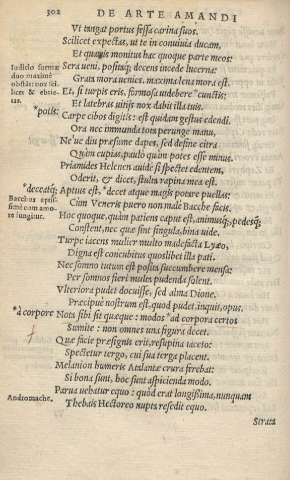 302 DE ARTE AMANDI
Vt tangat portus fessa carina suos.
Scilicet expectas, ut te in conuiuia ducam,
Et quæris monitus hac quoque parte meos:
Iudicio formæ
duo maximè
obstāt: nox sci-
licet & ebrie-
tas.
Sera ueni, positaq́; decens incede lucerna:
Grata mora uenies, maxima lena mora est.
Et, si turpis eris, formosa uidebere *cunctis:
Et latebras uitijs nox dabit illa tuis.
*potis:
Carpe cibos digitis: est quidam gestus edendi.
Ora nec immunda tota perunge manu,
Ne'ue diu præsume dapes, sed desine citra
Quàm cupias, paulo quàm potes esse minus.
Priamides Helenen auidè si spectet edentem,
Oderit, & dicet, stulta rapina mea est.
*deceatq́;
Aptius est, *decet atque magis potare puellas:
Bacchus aptis-
simè cum amo-
re iungitur.
Cùm Veneris puero non malè Bacche facis.
Hoc quoque, quàm patiens caput est, animusq́;, pedesq́;
Constent, nec quæ sint singula, bina uide.
Turpe iacens mulier multo madefacta Lyæo,
Digna est concubitus quoslibet illa pati.
Nec somno tutum est posita succumbere mensa:
Per somnos fieri multa pudenda solent.
Vlteriora pudet docuisse, sed alma Dione,
Præcipuè nostrum est, quod pudet, inquit, opus.
*à corpore
Nota sibi sit quæque: modos *ad corpora certos
Sumite: non omnes una figura decet.
Quæ facie præsignis erit, resupina iaceto:
Spectetur tergo, cui sua terga placent.
Melanion humeris Atalantæ crura ferebat:
Si bona sunt, hoc sunt aspicienda modo.
Andromache.
Parua uehatur equo: quod erat longissima, nunquam
Thebaïs Hectoreo nupta resedit equo.
Strata